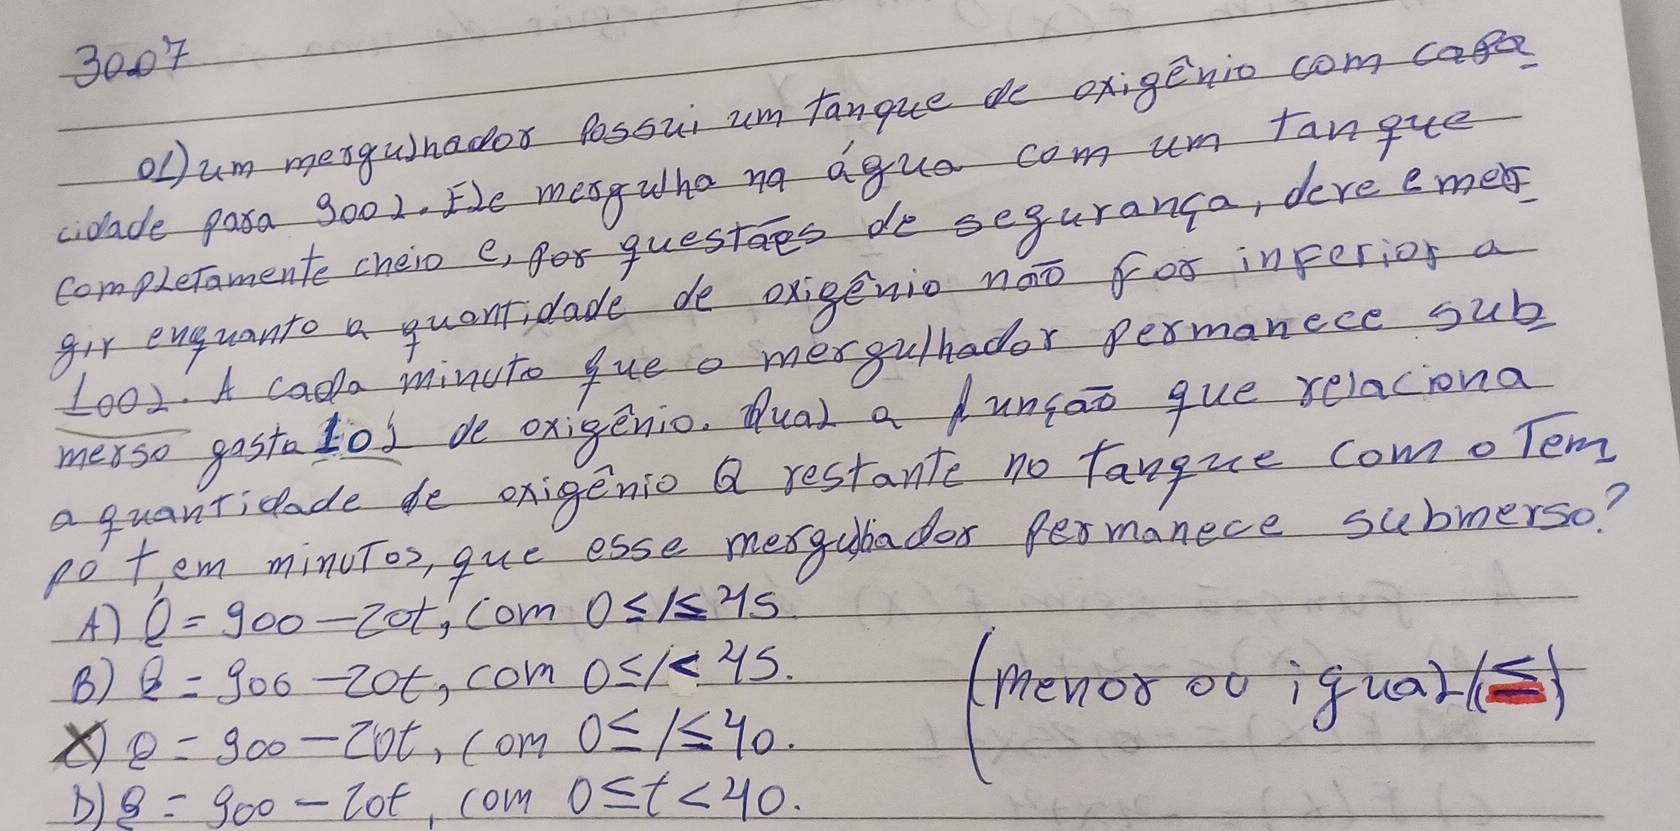 30.07
01) um mergulhador possui um tanque de oxigênio com capa-
cidade para 900l. Ele mergulha na água com um tanque
completamente cheio e, por questães de segurança, deve emer-
gir enquanto a quantidade de oxigênio não for inferior a
100l. A cada minuto que o mergulhador permanece sub-
merso gasta 10l de oxigênio. Qual a função que relaciona
a quantidade de oxigênio Q restante no tanque com o Tem
po t, em minutos, que esse mergulhador permanece submerso?
A) Q = 900 - 20t, com 0 ≤ t ≤ 45
B) Q = 900 - 20t, com 0 ≤ t < 45.
C) Q = 900 - 20t, com 0 ≤ t ≤ 40. (menor ou igual (≤))
D) Q = 900 - 20t, com 0 ≤ t < 40.